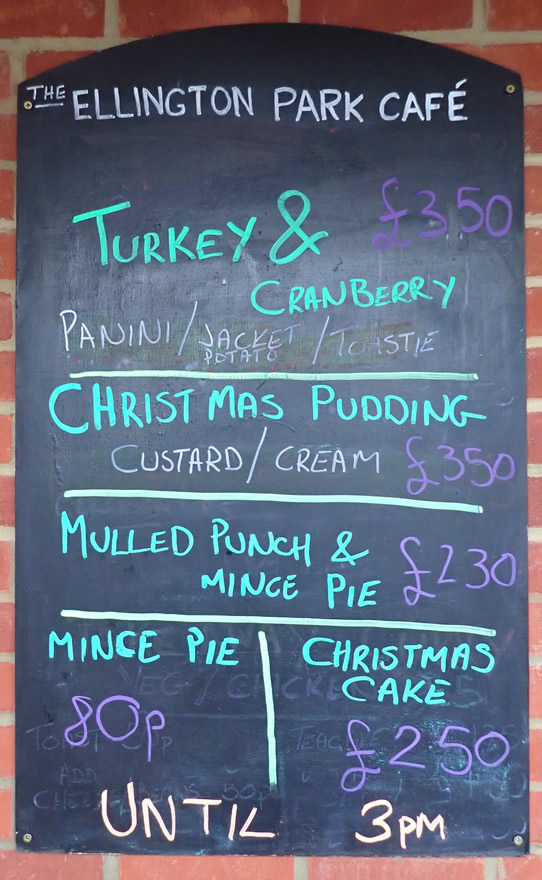 THE ELLINGTON PARK CAFÉ
TURKEY & £3.50
CRANBERRY
PANINI / JACKET POTATO / TOASTIE
CHRISTMAS PUDDING
CUSTARD / CREAM £3.50
MULLED PUNCH &
MINCE PIE £2.30
MINCE PIE
80p
CHRISTMAS
CAKE
£2.50
UNTIL 3PM